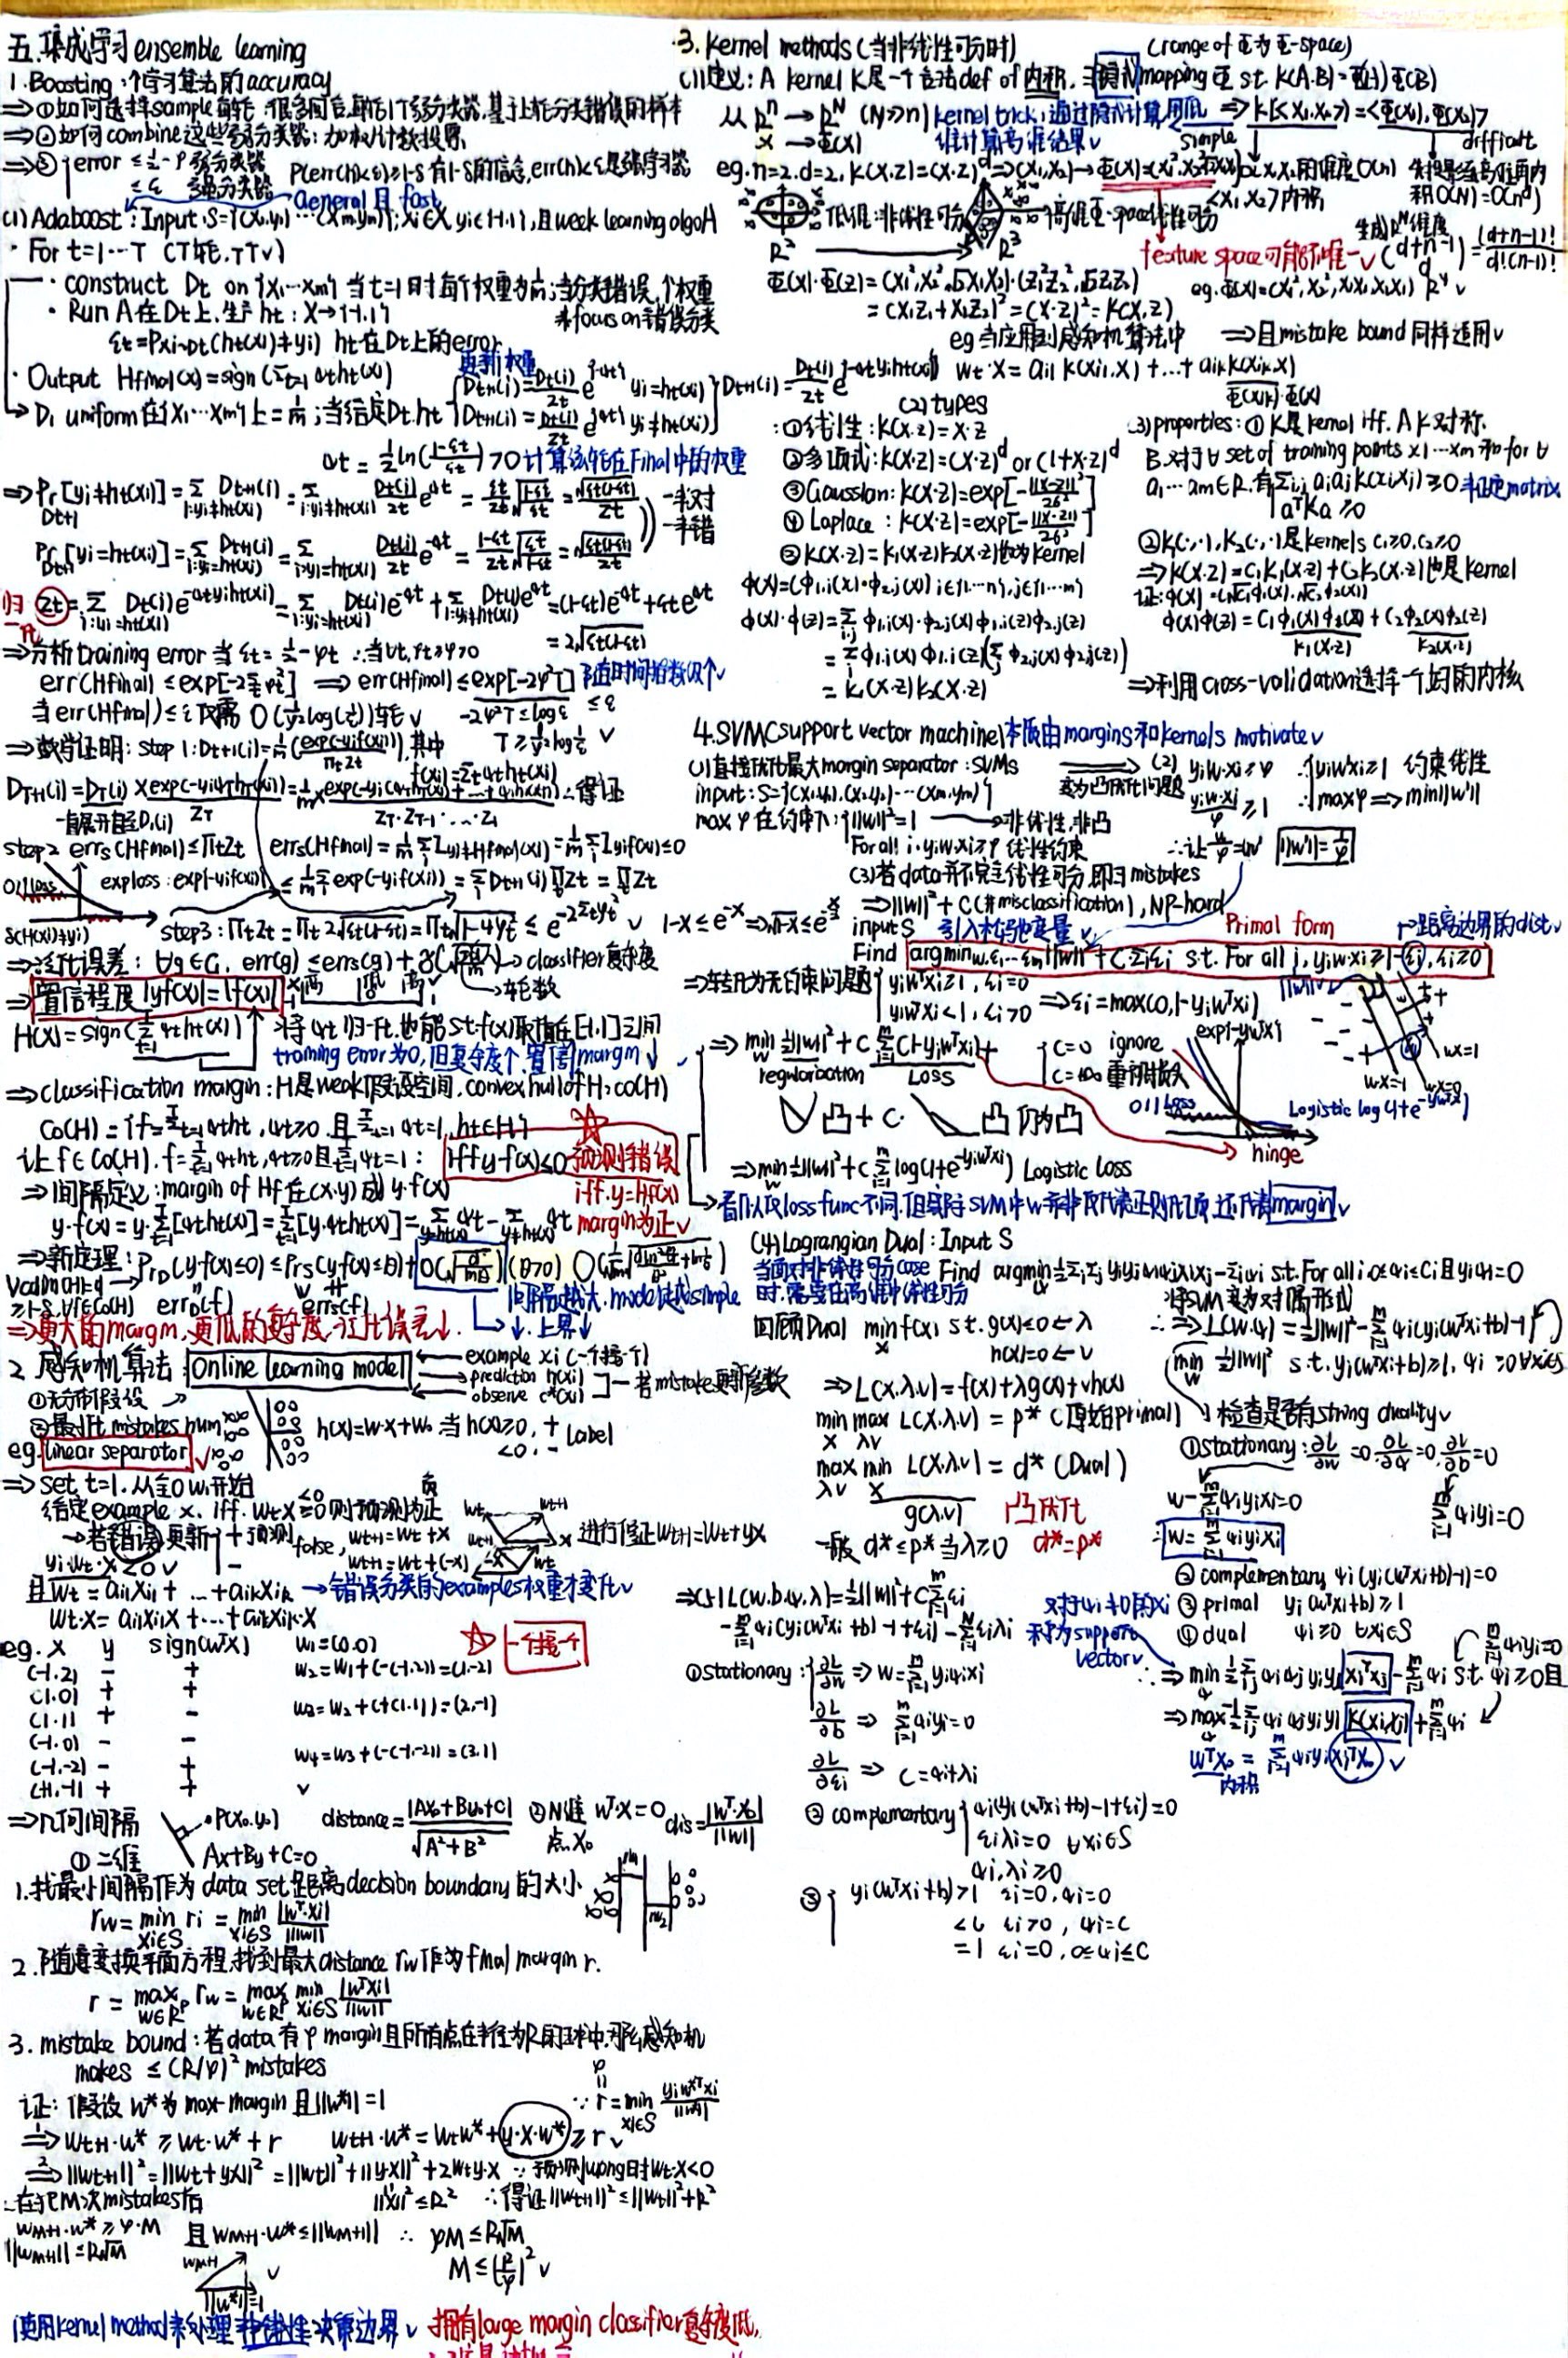 五.集成学习 ensemble learning
1.Boosting:↑学习算法的accuracy
⇒①如何选择sample每轮:很多回合,每轮1个弱分类器,基于上轮分类错误的样本
⇒②如何combine这些弱分类器:加权/计数投票
⇒③ {error ≤ 1/2-φ 弱分类器
≤ε 强分类器
P(err(h)<ε)≥1-δ 有1-δ的信念,err(h)<ε是强学习器
General 且 fast
(1) Adaboost:Input.S={(x1,y1)···(xm,ym)};xi∈X,yi∈{-1,1},且week learning algo A
· For t=1···T (T轮,T↑√)
· construct Dt on {x1···xm} 当t=1时每个权重为1/m;当分类错误,↑权重
来focus on错误分类
· Run A在Dt上,生产ht:X→{-1,1}
εt=Pxi~Dt(ht(xi)≠yi) ht在Dt上的error
· Output Hfinal(x)=sign(Σt=1 αtht(x))
更新权重
D1 uniform在{x1···xm}上=1/m;当给定Dt,ht {Dt+1(i)=Dt(i)/Zt e^{-αt} yi=ht(xi)
Dt+1(i)=Dt(i)/Zt e^{αt} yi≠ht(xi)} Dt+1(i)=Dt(i)/Zt e^{-αtyiht(xi)}
αt=1/2 ln((1-εt)/εt)>0 计算该轮在Final中的权重
⇒Pr Dt+1[yi≠ht(xi)]=Σ i:yi≠ht(xi) Dt+1(i)=Σ i:yi≠ht(xi) Dt(i)/Zt e^αt=εt/Zt √((1-εt)/εt)=√(εt(1-εt))/Zt
一半对
一半错
Pr Dt+1[yi=ht(xi)]=Σ i:yi=ht(xi) Dt+1(i)=Σ i:yi=ht(xi) Dt(i)/Zt e^-αt=(1-εt)/Zt √(εt/(1-εt))=√(εt(1-εt))/Zt
归一化
Zt=Σ Dt(i)e^{-αtyiht(xi)}=Σ i:yi=ht(xi) Dt(i)e^-αt+Σ i:yi≠ht(xi) Dt(i)e^αt=(1-εt)e^-αt+εte^αt
=2√(εt(1-εt))
⇒分析training error 当εt=1/2-φt ∴当∀t,φt≥φ>0
err(Hfinal)≤exp[-2Σφt²] ⇒ err(Hfinal)≤exp[-2φ²T] 随时间指数级↓√
当err(Hfinal)≤ε 仅需 O(1/φ² log(1/ε))轮√
-2φ²T≤logε ≤ε
T≥1/2φ² log1/ε √
⇒数学证明:step 1:DT+1(i)=1/m(exp(-yif(xi))/ΠtZt),其中
f(xi)=Σtαtht(xi)
DT+1(i)=DT(i)×exp(-yiαThT(xi))/ZT=1/m×exp(-yi(αThT(xi)+···+α1h1(xi)))/ZT·ZT-1·····Z1 ∴得证
一直展开直至D1(i)
step2 errs(Hfinal)≤ΠtZt errs(Hfinal)=1/m Σ I yi≠Hfinal(xi)=1/m Σ I yif(xi)≤0
0/1 loss exp loss:exp(-yif(xi)) ≤1/m Σexp(-yif(xi))=ΣDT+1(i)ΠZt=ΠZt
δ(H(xi)≠yi)
step3:ΠtZt=Πt2√(εt(1-εt))=Πt√(1-4φt²)≤e^{-2Σtφt²} √ 1-x≤e^-x⇒√(1-x)≤e^{-x/2}
→classifier复杂度
→轮数
⇒置信程度|yf(x)|=|f(x)| 高 低 高
H(x)=sign(Σt=1 αtht(x)) 将αt归一化,也能st.f(x)取值在[-1,1]之间
training error为0,但复杂度↑,置信margin↓
⇒classification margin:H是weak假设空间,convex hull of H:co(H)
Co(H)={f=Σt=1 αtht,αt≥0 且Σt=1 αt=1,ht∈H}
让f∈Co(H),f=Σt=1 αtht,αt≥0且Σt=1 αt=1:
iff y·f(x)≤0预测错误
iff.y=Hf(x)
margin为正√
⇒间隔定义:margin of Hf在(x,y)成y·f(x)
y·f(x)=y·Σ[αtht(x)]=Σ[y·αtht(x)]=Σ y=ht(x) αt-Σ y≠ht(x) αt
间隔越大,model越simple
→↓.上界↓
⇒更大的margin,更低的复杂度,泛化误差↓.
2 感知机算法:Online learning model
example xi (一个接一个)
prediction h(xi)
observe c*(xi)
一若mistake更新参数
①无分布假设
②最小化mistakes num
eg.linear separator√
h(x)=w·x+w0 当h(x)≥0,+ Label
<0,-
⇒set t=1,从全0w1开始
给定example x,iff.wtx≥0则预测为正
→若错误更新{+ 预测false,wt+1=wt+x
- wt+1=wt+(-x)
进行修正wt+1=wt+yx
yi·wt·x<0√
且wt=ai1xi1+…+aikxik→错误分类的examples权重才变化√
wt·x=ai1xi1x+…+aikxik·x
eg. x y sign(wᵀx) w1=(0,0)
☆ 一个接一个
(-1,2) - + w2=w1+(-(-1,2))=(1,-2)
(1,0) + +
(1,1) + - w3=w2+(+(1,1))=(2,-1)
(-1,0) - -
(-1,-2) - + w4=w3+(-(-1,-2))=(3,1)
(1,-1) + + √
⇒几何间隔 ·P(x0,y0) distance=|Ax0+By0+C|/√(A²+B²) ②N维 wᵀ·x=0 dis=|wᵀ·x0|/||w||
点x0
①二维 Ax+By+C=0
1.找最小间隔作为data set距离decision boundary的大小
rw=min xi∈S ri=min xi∈S |wᵀ·xi|/||w||
2.随意变换平面方程,找到最大distance rw作为final margin r.
r=max w∈Rᵖ rw=max w∈Rᵖ min xi∈S |wᵀxi|/||w||
3.mistake bound:若data有φ margin且所有点在半径为R的球中,那么感知机
makes ≤(R/φ)² mistakes
证:假设w*为max-margin且||w*||=1 ∵r=min xi∈S yiw*ᵀxi/||w*||
⇒wt+1·w*≥wt·w*+r wt+1·w*=wtw*+y·x·w*≥r√
⇒||wt+1||²=||wt+yx||²=||wt||²+||yx||²+2wty·x ∵预测wrong时wt·x<0
||x||²≤R² ∴得证||wt+1||²≤||wt||²+R²
∴在犯M次mistakes后
wM+1·w*≥φ·M 且wM+1·w*≤||wM+1|| ∴φM≤R√M
||wM+1||≤R√M M≤(R/φ)²√
使用kernel method来处理非线性决策边界√ 拥有large margin classifier复杂度低,
3.Kernel methods(当非线性可分时) (range of Φ为Φ-space)
(1)定义:A kernel K是一个合法def of内积,∃隐式mapping Φ st.K(A,B)=Φ(A)Φ(B)
从Rⁿ→Rᴺ (N≫n) kernel trick:通过隐式计算用低维计算高维结果√ ⇒K(<x1,x2>)=<Φ(x1),Φ(x2)>
x→Φ(x) simple difficult
eg.n=2,d=2,K(x,z)=(x·z)ᵈ⇒(x1,x2)→Φ(x)=(x1²,x2²,√2x1x2)
<x1,x2>内积
积O(N)=O(nᵈ)
低维:非线性可分 高维Φ-space线性可分
R² R³
feature space可能不唯一√
生成Rᴺ维度 (d+n-1 d)=(d+n-1)!/d!(n-1)!
Φ(x)·Φ(z)=(x1²,x2²,√2x1x2)·(z1²z2²,√2z1z2)
eg.Φ(x)=(x1²,x2²,x1x2,x2x1) R⁴√
=(x1z1+x2z2)²=(x·z)²=K(x,z)
eg当应用到感知机算法中 ⇒且mistake bound同样适用√
wt·x=ai1K(xi1,x)+…+aikK(xik,x)
Φ(xik)·Φ(x)
(2)types
①线性:K(x,z)=x·z
②多项式:K(x,z)=(x·z)ᵈ or (1+x·z)ᵈ
③Gaussian:K(x,z)=exp[-||x-z||²/2δ²]
④Laplace:K(x,z)=exp[-||x-z||/2δ²]
③K(x,z)=K1(x,z)K2(x,z)也为kernel
φ(x)=(φ1,i(x)·φ2,j(x)) i∈{1···n},j∈{1···m}
φ(x)·φ(z)=Σi,j φ1,i(x)·φ2,j(x)φ1,i(z)φ2,j(z)
=Σi φ1,i(x)φ1,i(z)(Σj φ2,j(x)φ2,j(z))
=K1(x,z)K2(x,z)
(3)properties:①K是kernel iff.A K对称.
B.对于∀set of training points x1···xm和for∀
a1···am∈R.有Σi,j aiajK(xixj)≥0半正定matrix
aᵀKa≥0
②K1(·,·),K2(·,·)是kernels c1≥0,c2≥0
⇒K(x,z)=c1K1(x,z)+c2K2(x,z)也是kernel
证:φ(x)=(√c1φ1(x),√c2φ2(x))
φ(x)φ(z)=c1φ1(x)φ1(z)+c2φ2(x)φ2(z)
K1(x,z) K2(x,z)
⇒利用cross-validation选择一个好的内核
4.SVM(support vector machine)本质由margins和kernels motivate√
(1)直接优化最大margin separator:SVMs
input:S={(x1,y1),(x2,y2)···(xm,ym)}
变为凸优化问题
max φ在约束下:{||w||²=1→非线性,非凸
For all i.yiw·xi≥φ 线性约束
(2) yiw·xi≥φ ∴{yiw'xi≥1 约束线性
yiw·xi/φ≥1 ∴maxφ⇒min||w'||
∴让w/φ=w' ||w'||=1/φ
(3)若data并不完全线性可分,即∃mistakes
⇒||w||²+C(#misclassification),NP-hard
input S 引入松弛变量√ Primal form r→距离边界的dist.√
Find argmin w,ε1···εm ||w||²+CΣiεi s.t. For all i,yiw·xi≥1-εi,εi≥0
⇒转化为无约束问题{yiwᵀxi≥1,εi=0
yiwᵀxi<1,εi>0 ⇒εi=max(0,1-yiwᵀxi)
⇒min w 1/2||w||²+C Σ(1-yiwᵀxi)+ {C=0 ignore
C=+∞ 重视损失
regularization Loss
凸+C· 凸 仍为凸
exp(-ywᵀx)
0/1 loss
Logistic log(1+e^{-ywᵀx})
hinge
wx=1
wx=-1 wx=0
⇒min 1/2||w||²+C Σlog(1+e^{-yiwᵀxi}) Logistic Loss
看似仅loss func不同,但实际SVM中w并非仅代表正则化项,还代表margin√
(4)Lagrangian Dual:Input S
当面对非线性可分case
时,需要在高维中线性可分
Find argmin α 1/2ΣiΣj yiyjαiαjxixj-Σiαi s.t.For all i:0≤αi≤Ci且Σyiαi=0
回顾Dual min x f(x) s.t.g(x)≤0←λ
h(x)=0←v
将SVM变为对偶形式
∴⇒L(w,α)=1/2||w||²-Σαi(yi(wᵀxi+b)-1)
min w 1/2||w||² s.t.yi(wᵀxi+b)≥1,αi≥0∀xi∈S
⇒L(x,λ,v)=f(x)+λg(x)+vh(x)
min x max λv L(x,λ,v)=p* (原始primal)
max λv min x L(x,λ,v)=d* (Dual)
g(λ,v) 凸优化
一般d*≤p*当λ≥0 d*=p*
检查是否有strong duality√
①stationary:∂L/∂w=0,∂L/∂α=0,∂L/∂b=0
w-Σαiyixi=0 Σαiyi=0
∴w=Σαiyixi
②complementary αi(yi(wᵀxi+b)-1)=0
对于αi≠0的xi
称为support
vector√
③primal yi(wᵀxi+b)≥1
④dual αi≥0 ∀xi∈S
∴⇒min α 1/2Σi,j αiαjyiyj xiᵀxj-Σαi s.t.αi≥0且Σαiyi=0
⇒max α -1/2Σi,j αiαjyiyj K(xi,xj)+Σαi
wᵀx0=Σαiyixiᵀx0 √
内积
⇒(5)L(w,b,α,λ)=1/2||w||²+CΣεi
-Σαi(yi(wᵀxi+b)-1+εi)-Σεiλi
①stationary:{∂L/∂w⇒w=Σyiαixi
∂L/∂b⇒Σαiyi=0
∂L/∂εi⇒C=αi+λi
②complementary{αi(yi(wᵀxi+b)-1+εi)=0
εiλi=0 ∀xi∈S
αi,λi≥0
③{yi(wᵀxi+b)>1 εi=0,αi=0
<1 εi>0,αi=C
=1 εi=0,0≤αi≤C